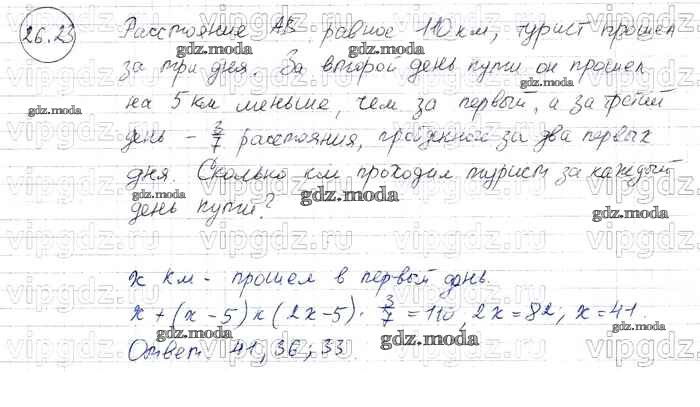 26.23 Расстояние АВ, равное 110 км, турист прошел
за три дня. За второй день пути он прошел
на 5 км меньше, чем за первый, а за третий
день – 3/7 расстояния, пройденной за два первых
дня. Сколько км проходил турист за каждый
день пути?
x км - прошел в первый день.
x + (x - 5) + (2x - 5) · 3/7 = 110, 2x = 82; x = 41.
Ответ: 41; 36; 33.